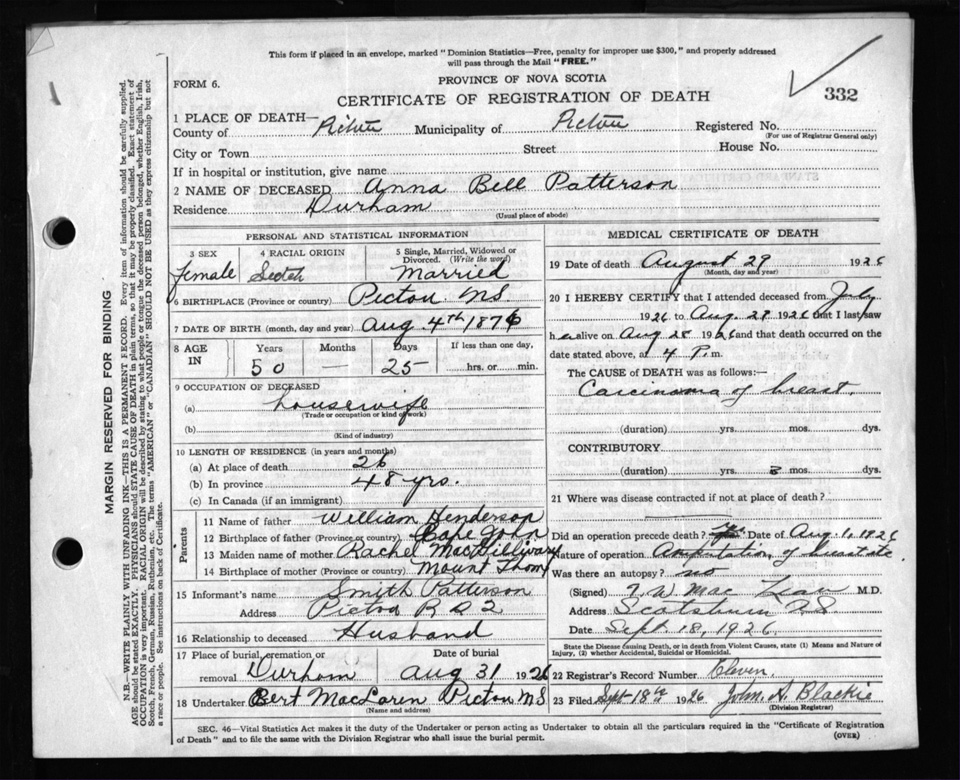 This form if placed in an envelope, marked "Dominion Statistics—Free, penalty for improper use $300," and properly addressed
will pass through the Mail "FREE."
FORM 6.
PROVINCE OF NOVA SCOTIA
CERTIFICATE OF REGISTRATION OF DEATH
332
1 PLACE OF DEATH—
County of Pictou Municipality of Pictou Registered No.
(For use of Registrar General only)
City or Town Street House No.
If in hospital or institution, give name
2 NAME OF DECEASED Anna Bell Patterson
Residence Durham
(Usual place of abode)
PERSONAL AND STATISTICAL INFORMATION
3 SEX female
4 RACIAL ORIGIN Scotch
5 Single, Married, Widowed or Divorced. (Write the word) Married
6 BIRTHPLACE (Province or country) Pictou N.S.
7 DATE OF BIRTH (month, day and year) Aug. 4th 1876
8 AGE IN Years 50 Months — Days 25 If less than one day, hrs. or min.
9 OCCUPATION OF DECEASED
(a) housewife
(Trade or occupation or kind of work)
(b)
(Kind of industry)
10 LENGTH OF RESIDENCE (in years and months)
(a) At place of death 26
(b) In province 48 yrs.
(c) In Canada (if an immigrant)
Parents
11 Name of father William Henderson
12 Birthplace of father (Province or country) Cape John
13 Maiden name of mother Rachel MacGillivary
14 Birthplace of mother (Province or country) Mount Thom
15 Informant's name Smith Patterson
Address Pictou R R 2
16 Relationship to deceased Husband
17 Place of burial, cremation or removal Durham Date of burial Aug 31 1926
18 Undertaker Bert MacLaren Pictou N.S
(Name and address)
MEDICAL CERTIFICATE OF DEATH
19 Date of death August 29 1926
(Month, day and year)
20 I HEREBY CERTIFY that I attended deceased from July
1926 to Aug. 29 1926 that I last saw
h alive on Aug 28 1926 and that death occurred on the
date stated above, at 4 P.m.
The CAUSE of DEATH was as follows:—
Carcinoma of breast.
(duration) yrs. mos. dys.
CONTRIBUTORY
(duration) yrs. 3 mos. dys.
21 Where was disease contracted if not at place of death?
Did an operation precede death? yes Date of Aug 1, 1926
Nature of operation Amputation of breast
Was there an autopsy? no
(Signed) M.D.
Address Scotsburn NS
Date Sept. 18, 1926
State the Disease causing Death, or in death from Violent Causes, state (1) Means and Nature of
Injury, (2) whether Accidental, Suicidal or Homicidal.
22 Registrar's Record Number Eleven
23 Filed Sept 18th 1926 John A. Blackie
(Division Registrar)
SEC. 46—Vital Statistics Act makes it the duty of the Undertaker or person acting as Undertaker to obtain all the particulars required in the "Certificate of Registration
of Death" and to file the same with the Division Registrar who shall issue the burial permit.
(OVER)
MARGIN RESERVED FOR BINDING
N.B.—WRITE PLAINLY WITH UNFADING INK—THIS IS A PERMANENT RECORD. Every item of information should be carefully supplied.
AGE should be stated EXACTLY. PHYSICIANS should STATE CAUSE OF DEATH in plain terms, so that it may be properly classified. Exact statement of
OCCUPATION is very important. RACIAL ORIGIN will be described by stating to what people or tongue the deceased person belonged, whether English, Irish,
Scotch, French, German, Russian, Ruthenian, etc. The terms "AMERICAN" or "CANADIAN" SHOULD NOT BE USED as they express citizenship but not
a race or people. See instructions on back of Certificate.